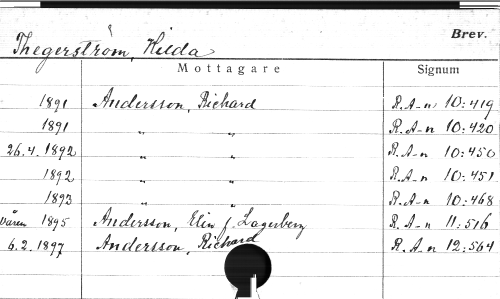 Brev.
Thegerström, Hilda
Mottagare Signum
1891 Andersson, Richard R.A-n 10:419
1891 „ „ R.A-n 10:420
26.4.1892 „ „ R.A-n 10:450
1892 „ „ R.A-n 10:451
1893 „ „ R.A-n 10:468
våren 1895 Andersson, Elin f. Lagerberg R.A-n 11:516
6.2.1897 Andersson, Richard R.A-n 12:564